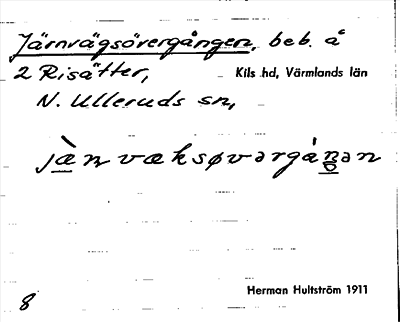 Järnvägsövergången, beb. å
2 Risätter,
Kils hd, Värmlands län
N. Ulleruds sn,
jæ̀n væksøvərgáŋən
Herman Hultström 1911
8